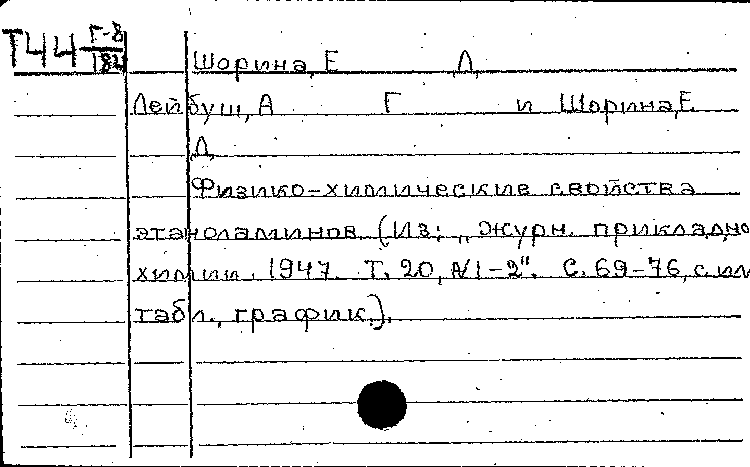 Т44 Г-8
182
Шорина, Е Д.
Лейбуш, А Г и Шорина, Е.
Д.
Физико-химические свойства
этаноламинов. (Из: „Журн. прикладно
химии. 1947. Т. 20, №1-2". С. 69-76, с ил
табл., график.).